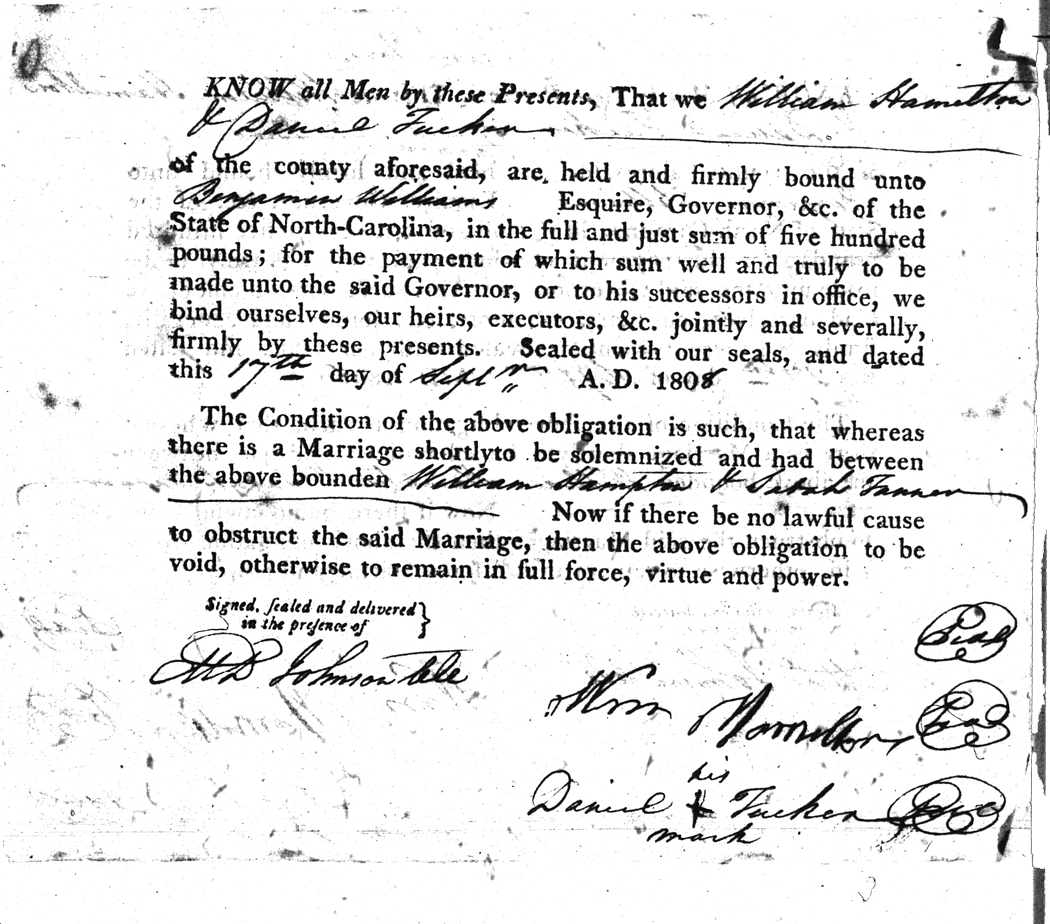 KNOW all Men by these Presents, That we William Hamelton
& Daniel Tucker
of the county aforesaid, are held and firmly bound unto
Benjamin Williams Esquire, Governor, &c. of the
State of North-Carolina, in the full and just sum of five hundred
pounds; for the payment of which sum well and truly to be
made unto the said Governor, or to his successors in office, we
bind ourselves, our heirs, executors, &c. jointly and severally,
firmly by these presents. Sealed with our seals, and dated
this 17th day of Septr A. D. 1808
The Condition of the above obligation is such, that whereas
there is a Marriage shortlyto be solemnized and had between
the above bounden William Hampton & Sarah Tanner
Now if there be no lawful cause
to obstruct the said Marriage, then the above obligation to be
void, otherwise to remain in full force, virtue and power.
Signed, sealed and delivered }
in the presence of
Johnson Seal
Wm Hamelton Seal
his
Daniel + Tucker Seal
mark